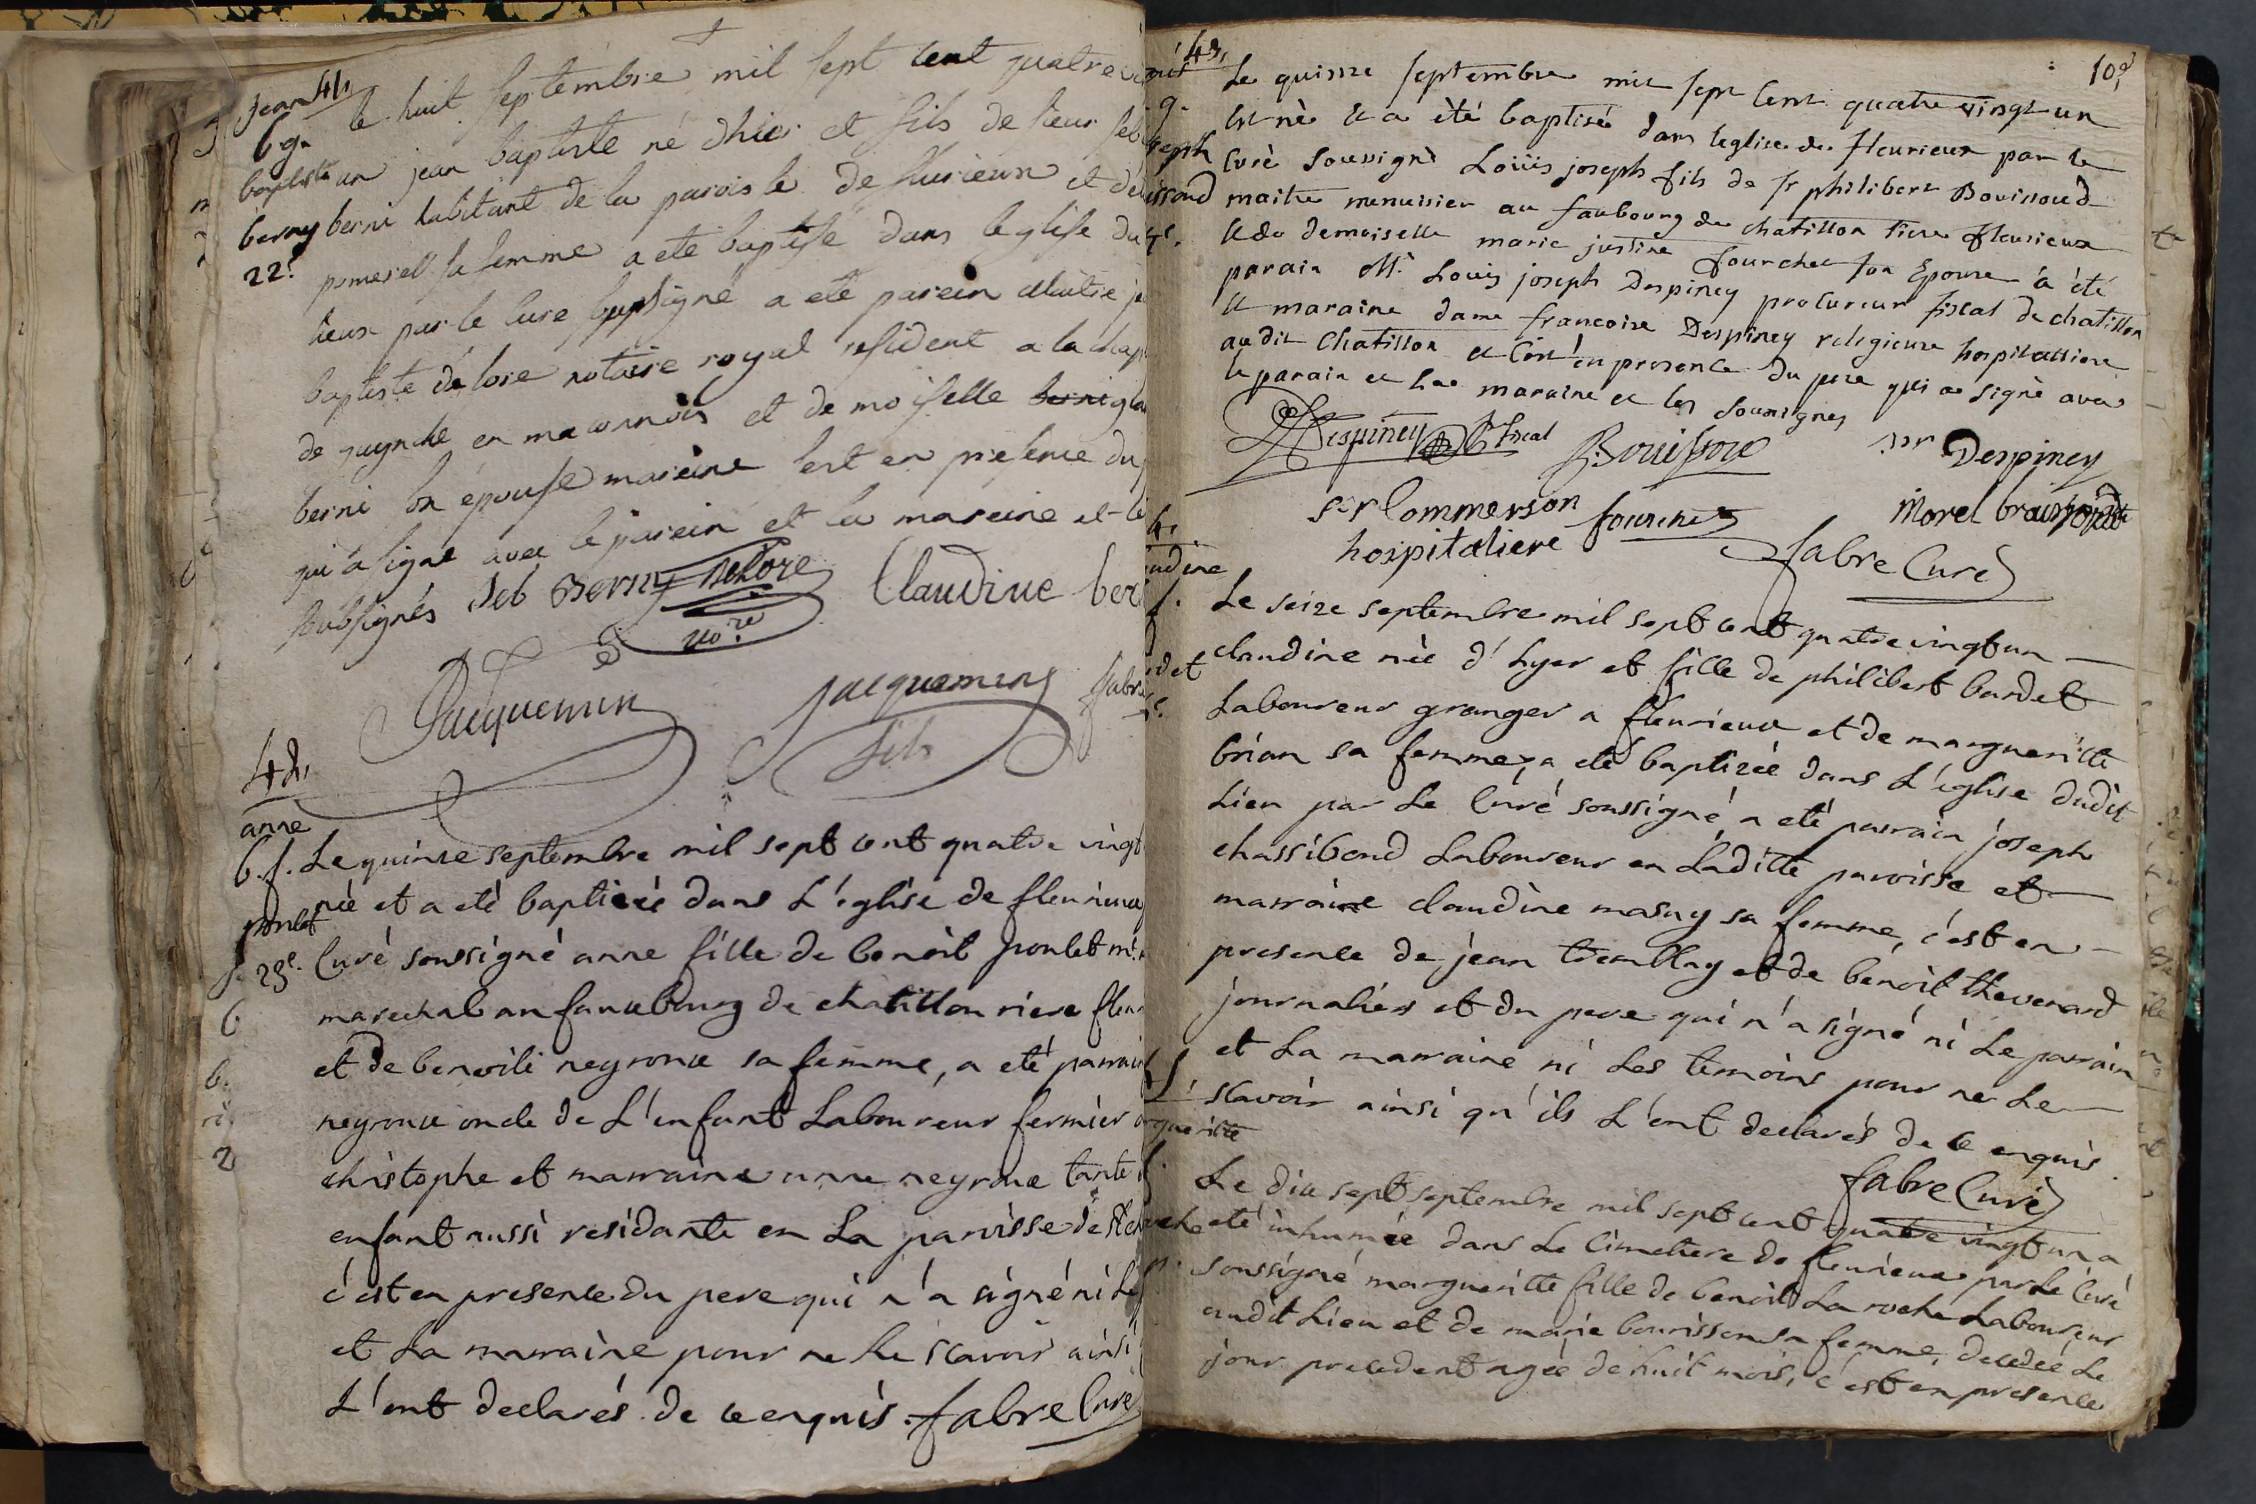 jean 41,
b g.
baptiste
berny
22.e
le huit septembre mil sept cent quatre
un jean baptiste né d'hier et fils de sieur seb
berni habitant de la paroisse de fleurieux et de
pomerel sa femme a ete baptisé dans leglise du
lieux par le curé soussigné a eté parein maitre je
baptiste delore notaire royal resident a la chap
de guynche en maconnois et de moiselle
berni son epouse mareine cest en presence du
qui a signé avec le parein et la mareine et le
soubsignés Seb Berny Delore Claudine ber
no.re
Jacquemin jacquemin fabre
fils
42,
anne
b. f.
poulet
23e.
Le quinze septembre mil sept cent quatre vingt
née et a eté baptisée dans L'église de fleurieux
Curé soussigné anne fille de benoit poulet m.
marechal au fauxbourg de chatillon riere fleu
et de benoite negroux sa femme, a eté parrain
negroux oncle de L'enfant Laboureur fermier
christophe et marraine anne negroux tante
enfant aussi residante en La paroisse de St
c'est en presence du pere qui n'a signé ni Le
et La marraine pour ne Le scavoir ainsi
L'ont declarés de ce enquis. fabre Curé
10
43,
Le quinze septembre mil sept cent quatre vingt un
est né et a été baptisé dans leglise de fleurieux par le
curé soussigné Loüis joseph fils de sr philibert Bouissoud
maitre menuisier au faubourg de chatillon riere fleurieux
et de demoiselle marie justine fourchet son Epouse a été
parain Mr. Louis joseph Despiney procureur fiscal de chatillon
et maraine dame francoise Despiney religieuse hospitalliere
au dit Chatillon et c'est en presence du pere qui a signé avec
le parain et la maraine et les soussignes
Despiney p. fiscal Bouissou sr Despiney
sr Commerson fourchet Morel
hospitaliere fabre Curé
Le seize septembre mil sept cent quatre vingt un
claudine née d'hyer et fille de philibert bardet
Laboureur granger a fleurieux et de margueritte
brian sa femme, a eté baptizée dans L'église dudit
Lieu par Le Curé soussigné a eté parrain joseph
chassibond Laboureur en Laditte paroisse et
marraine claudine masuy sa femme, c'est en
presence de jean tremblay et de benoit thevenard
journaliers et du pere qui n'a signé ni Le parrain
et La marraine ni Les temoins pour ne Le
scavoir ainsi qu'ils L'ont declarés de ce enquis.
fabre Curé
Le dix sept septembre mil sept cent quatre vingt un a
eté inhumée dans Le Cimetiere de fleurieux par Le Curé
soussigné margueritte fille de benoit La roche Laboureur
audit Lieu et de marie bourisson sa femme, decedée Le
jour precedent agée de huit mois, c'est en presence